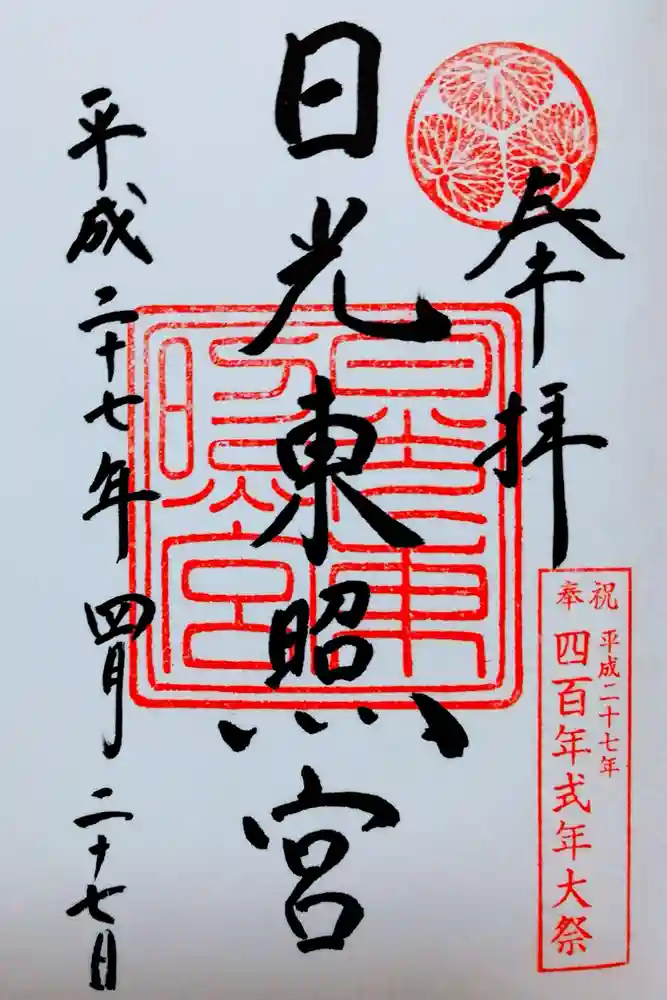 奉拝
日光東照宮
平成二十七年四月二十七日
奉祝
平成二十七年
四百年式年大祭
東照宮